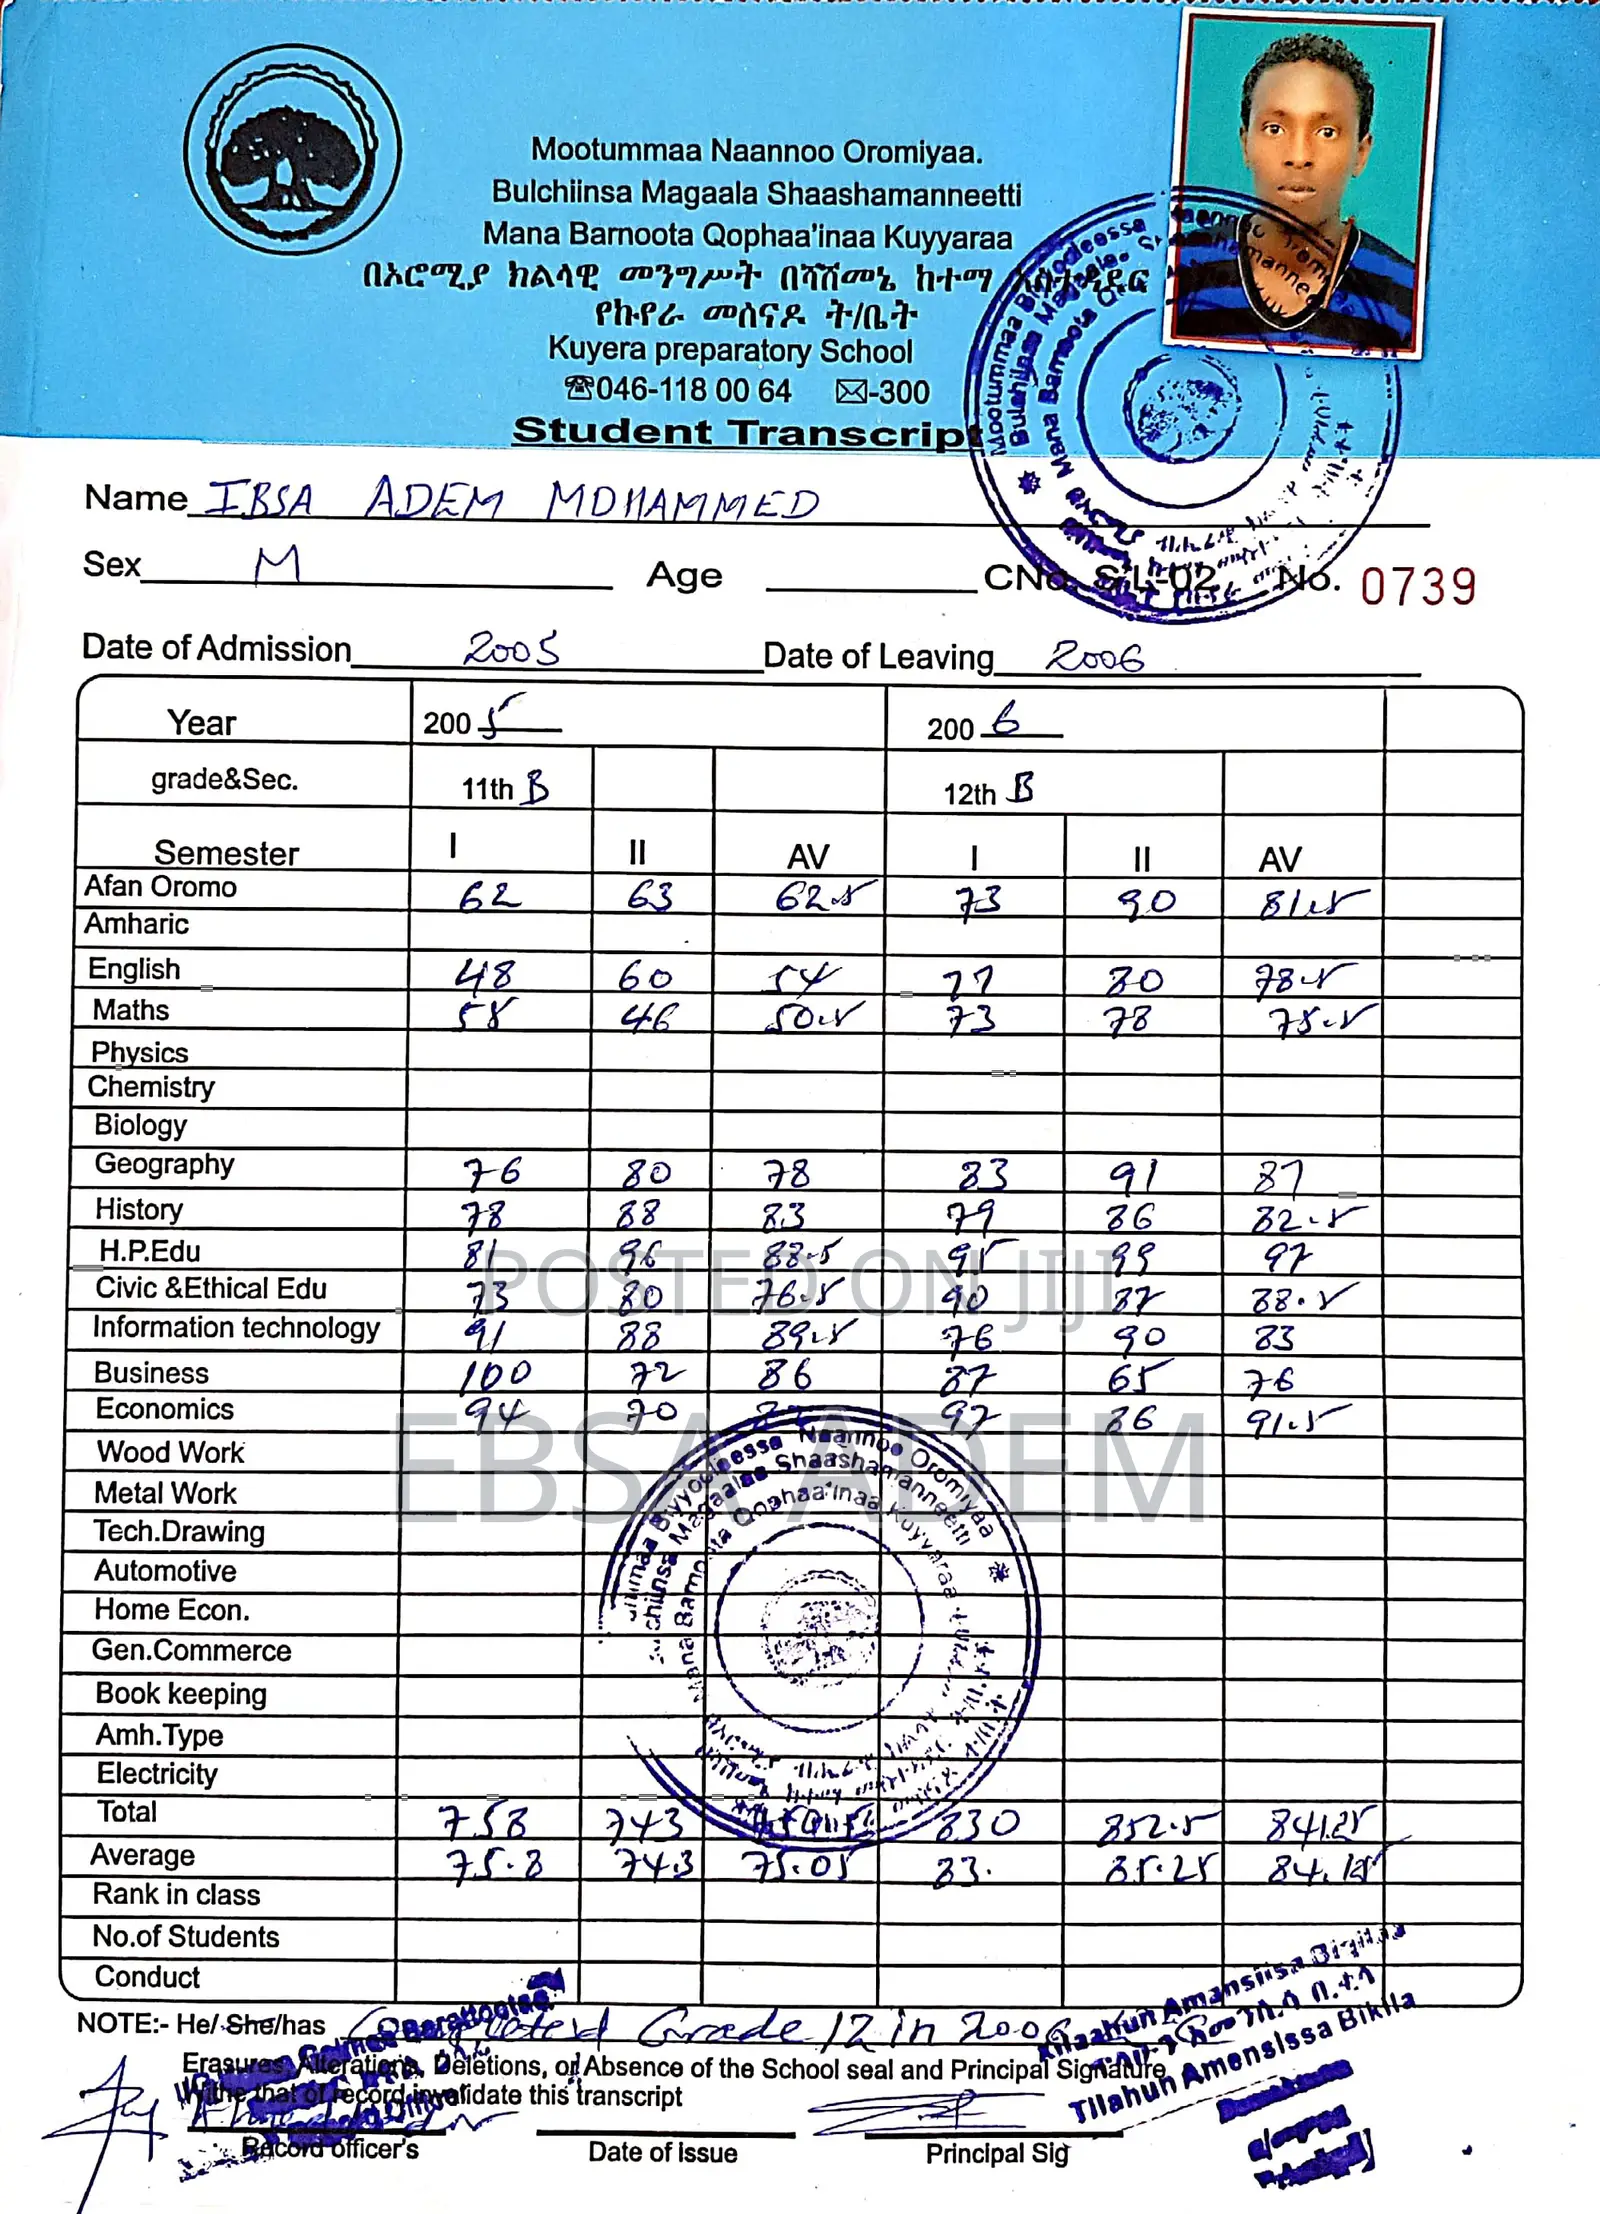 Mootummaa Naannoo Oromiyaa.
Bulchiinsa Magaala Shaashamanneetti
Mana Barnoota Qophaa'inaa Kuyyaraa
በኦሮሚያ ክልላዊ መንግሥት በሻሸመኔ ከተማ
የኩየራ መሰናዶ ት/ቤት
Kuyera preparatory School
☎046-118 00 64 ✉-300
Student Transcript
Name IBSA ADEM MOHAMMED
Sex M Age CNo. S/L-02 No. 0739
Date of Admission 2005 Date of Leaving 2006
Year 2005 2006
grade&Sec. 11th B 12th B
Semester I II AV I II AV
Afan Oromo 62 63 62.5 73 90 81.5
Amharic
English 48 60 54 77 80 78.5
Maths 55 46 50.5 73 78 75.5
Physics
Chemistry
Biology
Geography 76 80 78 83 91 87
History 78 88 83 79 86 82.5
H.P.Edu 81 96 88.5 95 99 97
Civic &Ethical Edu 73 80 76.5 90 87 88.5
Information technology 91 88 89.5 76 90 83
Business 100 72 86 87 65 76
Economics 94 70 82 97 86 91.5
Wood Work
Metal Work
Tech.Drawing
Automotive
Home Econ.
Gen.Commerce
Book keeping
Amh.Type
Electricity
Total 758 743 830 852.5 841.25
Average 75.8 74.3 75.05 83. 85.25 84.125
Rank in class
No.of Students
Conduct
NOTE:- He/She/has Completed Grade 12 in 2006
Erasures, Alterations, Deletions, or Absence of the School seal and Principal Signature
invalidate this transcript
Record officer's Date of Issue Principal Sig
Tilahun Amensissa Bikila
Mana Barnoota Qophaa'inaa Kuyyaraa
POSTED ON JIJI
EBSA ADEM